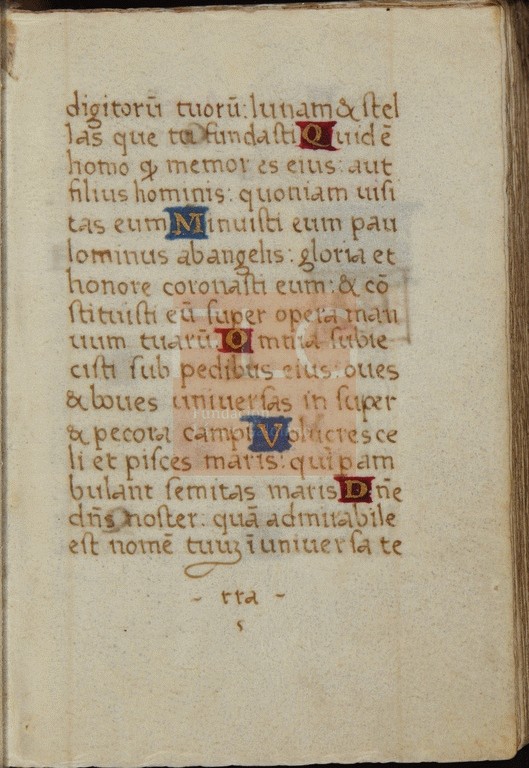 digitorū tuorū: lunam & stel
las que tu fundasti Quid ē
homo ꝙ memor es eius: aut
filius hominis: quoniam uisi
tas eum Minuisti eum pau
lominus ab angelis: gloria et
honore coronasti eum: & cō
stituisti eū super opera man
uum tuarū: Omnia subie
cisti sub pedibus eius: oues
& boues uniuersas in super
& pecora campi Volucres ce
li et pisces maris: qui pam
bulant semitas maris Dn̄e
dn̄s noster: quā admirabile
est nomē tuuꝫ ī uniuersa te
- rra -
Fundación